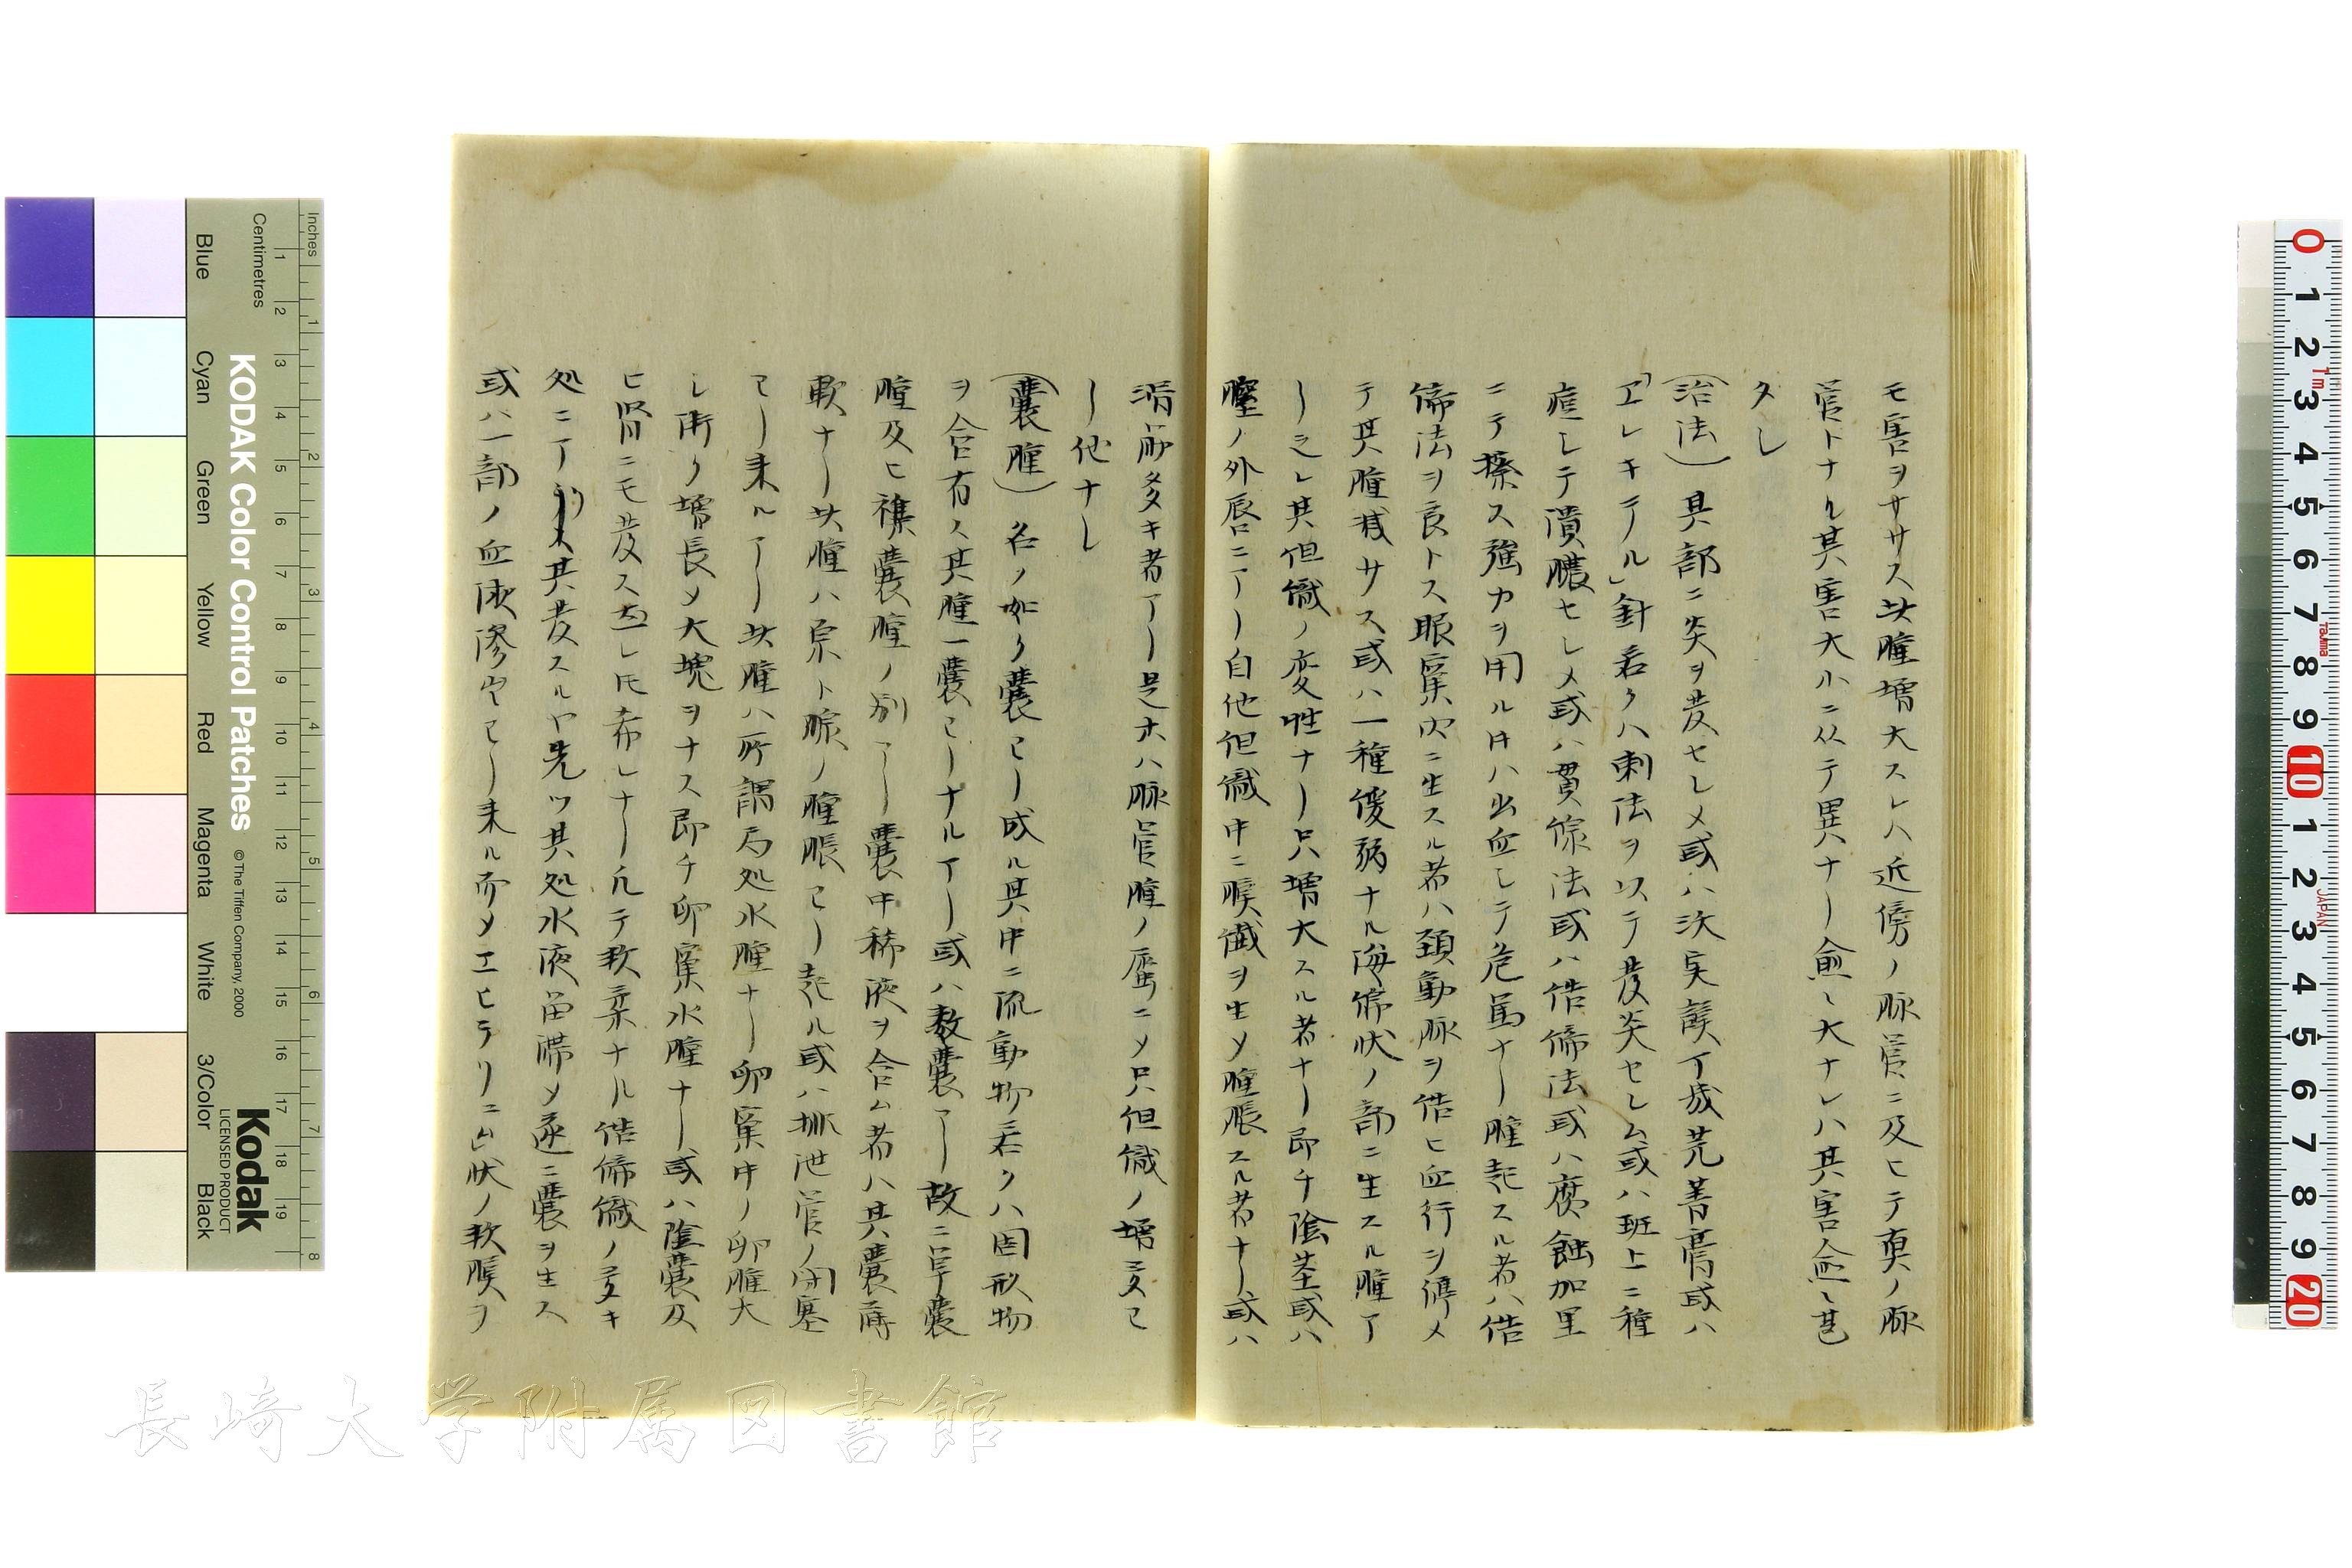 モ害ヲササス此腫増大スレハ近傍ノ脈管ニ及ヒテ真ノ脈
管トナル其害大小ニ从テ異ナリ愈〻大ナレハ其害愈〻甚
タシ
(治法)其部ニ炎ヲ発セシメ或ハ次
膏或ハ
「エレキテル」針若クハ刺法ヲ以テ発炎セシム或ハ斑上ニ種
痘シテ潰膿セシメ或ハ貫線法或ハ結締法或ハ腐蝕加里
ニテ擦ス強力ヲ用ル时ハ出血シテ危篤ナリ腫起スル者ハ結
締法ヲ良トス眼窠内ニ生スル者ハ頚動脈ヲ結ヒ血行ヲ停メ
テ其腫減サス或ハ一種
ナル海綿状ノ部ニ生スル腫ア
リ之レ其組織ノ変性ナリ只増大スル者ナリ即チ陰茎或ハ
膣ノ外唇ニアリ自他組織中ニ
ヲ生メ腫脹スル者ナリ或ハ
多キ者アリ是ホハ脈管腫ノ属ニメ只組織ノ増多ヨ
リ他ナシ
(嚢腫)名ノ如ク嚢ヨリ成ル其中ニ流動物若クハ固形物
ヲ含有ス其腫一嚢ヨリナルアリ或ハ数嚢アリ故ニ単嚢
腫及ヒ複嚢腫ノ別アリ嚢中稀液ヲ含ム者ハ其嚢薄
軟ナリ此腫ハ原ト腺ノ腫脹ヨリ起ル或ハ排泄管ノ閉塞
ヨリ来ルアリ此腫ハ所謂局処水腫ナリ卵窠中ノ卵腫大
シ漸ク増長メ大塊ヲナス即チ卵窠水腫ナリ或ハ陰嚢及
ヒ腎ニモ発ス然レ圧希レナリ凡テ軟柔ナル結締織ノ多キ
処ニアリ
其発スルヤ先ツ其処水液留滞メ遂ニ嚢ヲ生ス
或ハ一部ノ血液滲出ヨリ来ル而メエヒテリーム状ノ軟膜ヲ
KODAK Color Control Patches
© The Tiffen Company, 2000
Kodak
LICENSED PRODUCT
Inches
Centimetres
Blue
Cyan
Green
Yellow
Red
Magenta
White
3/Color
Black
1 2 3 4 5 6 7 8
1 2 3 4 5 6 7 8 9 10 11 12 13 14 15 16 17 18 19
0 1 2 3 4 5 6 7 8 9 10 1 2 3 4 5 6 7 8 9 20
1m
Tajima
JAPAN
長崎大学附属図書館